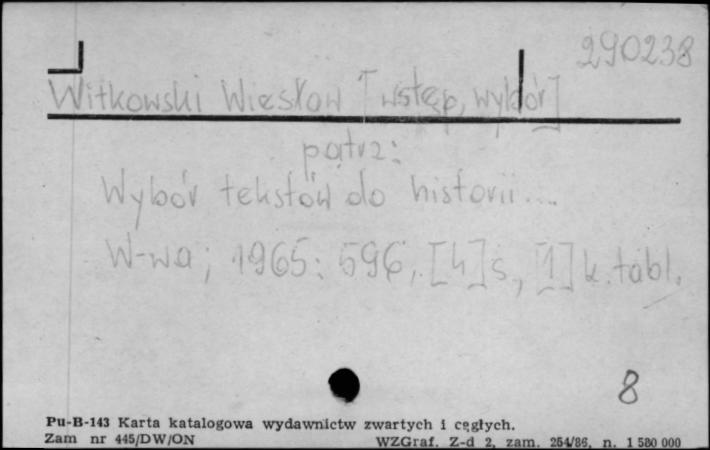 290238
Witkowski Wiesław [wstęp, wybór]
patrz:
Wybór tekstów do historii...
W-wa; 1965; 596, [4] s, [1] k. tabl.
8
Pu-B-143 Karta katalogowa wydawnictw zwartych i ciągłych.
Zam nr 445/DW/ON WZGraf. Z-d 2, zam. 264/86, n. 1 580 000